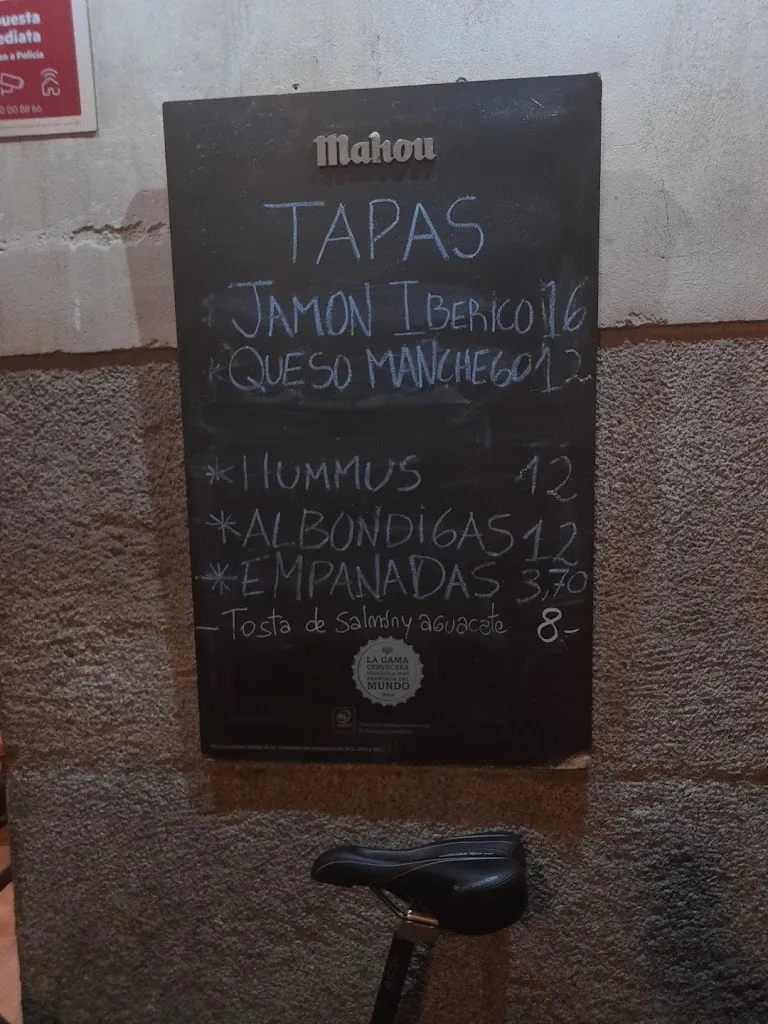 uesta
ediata
o a Policía
0 00 88 66
Mahou
TAPAS
* JAMON IBERICO 16
* QUESO MANCHEGO 12
* HUMMUS 12
* ALBONDIGAS 12
* EMPANADAS 3,70
- Tosta de Salmón y aguacate 8-
LA GAMA
CERVECERA
ESPAÑOLA MÁS
PREMIADA DEL
MUNDO